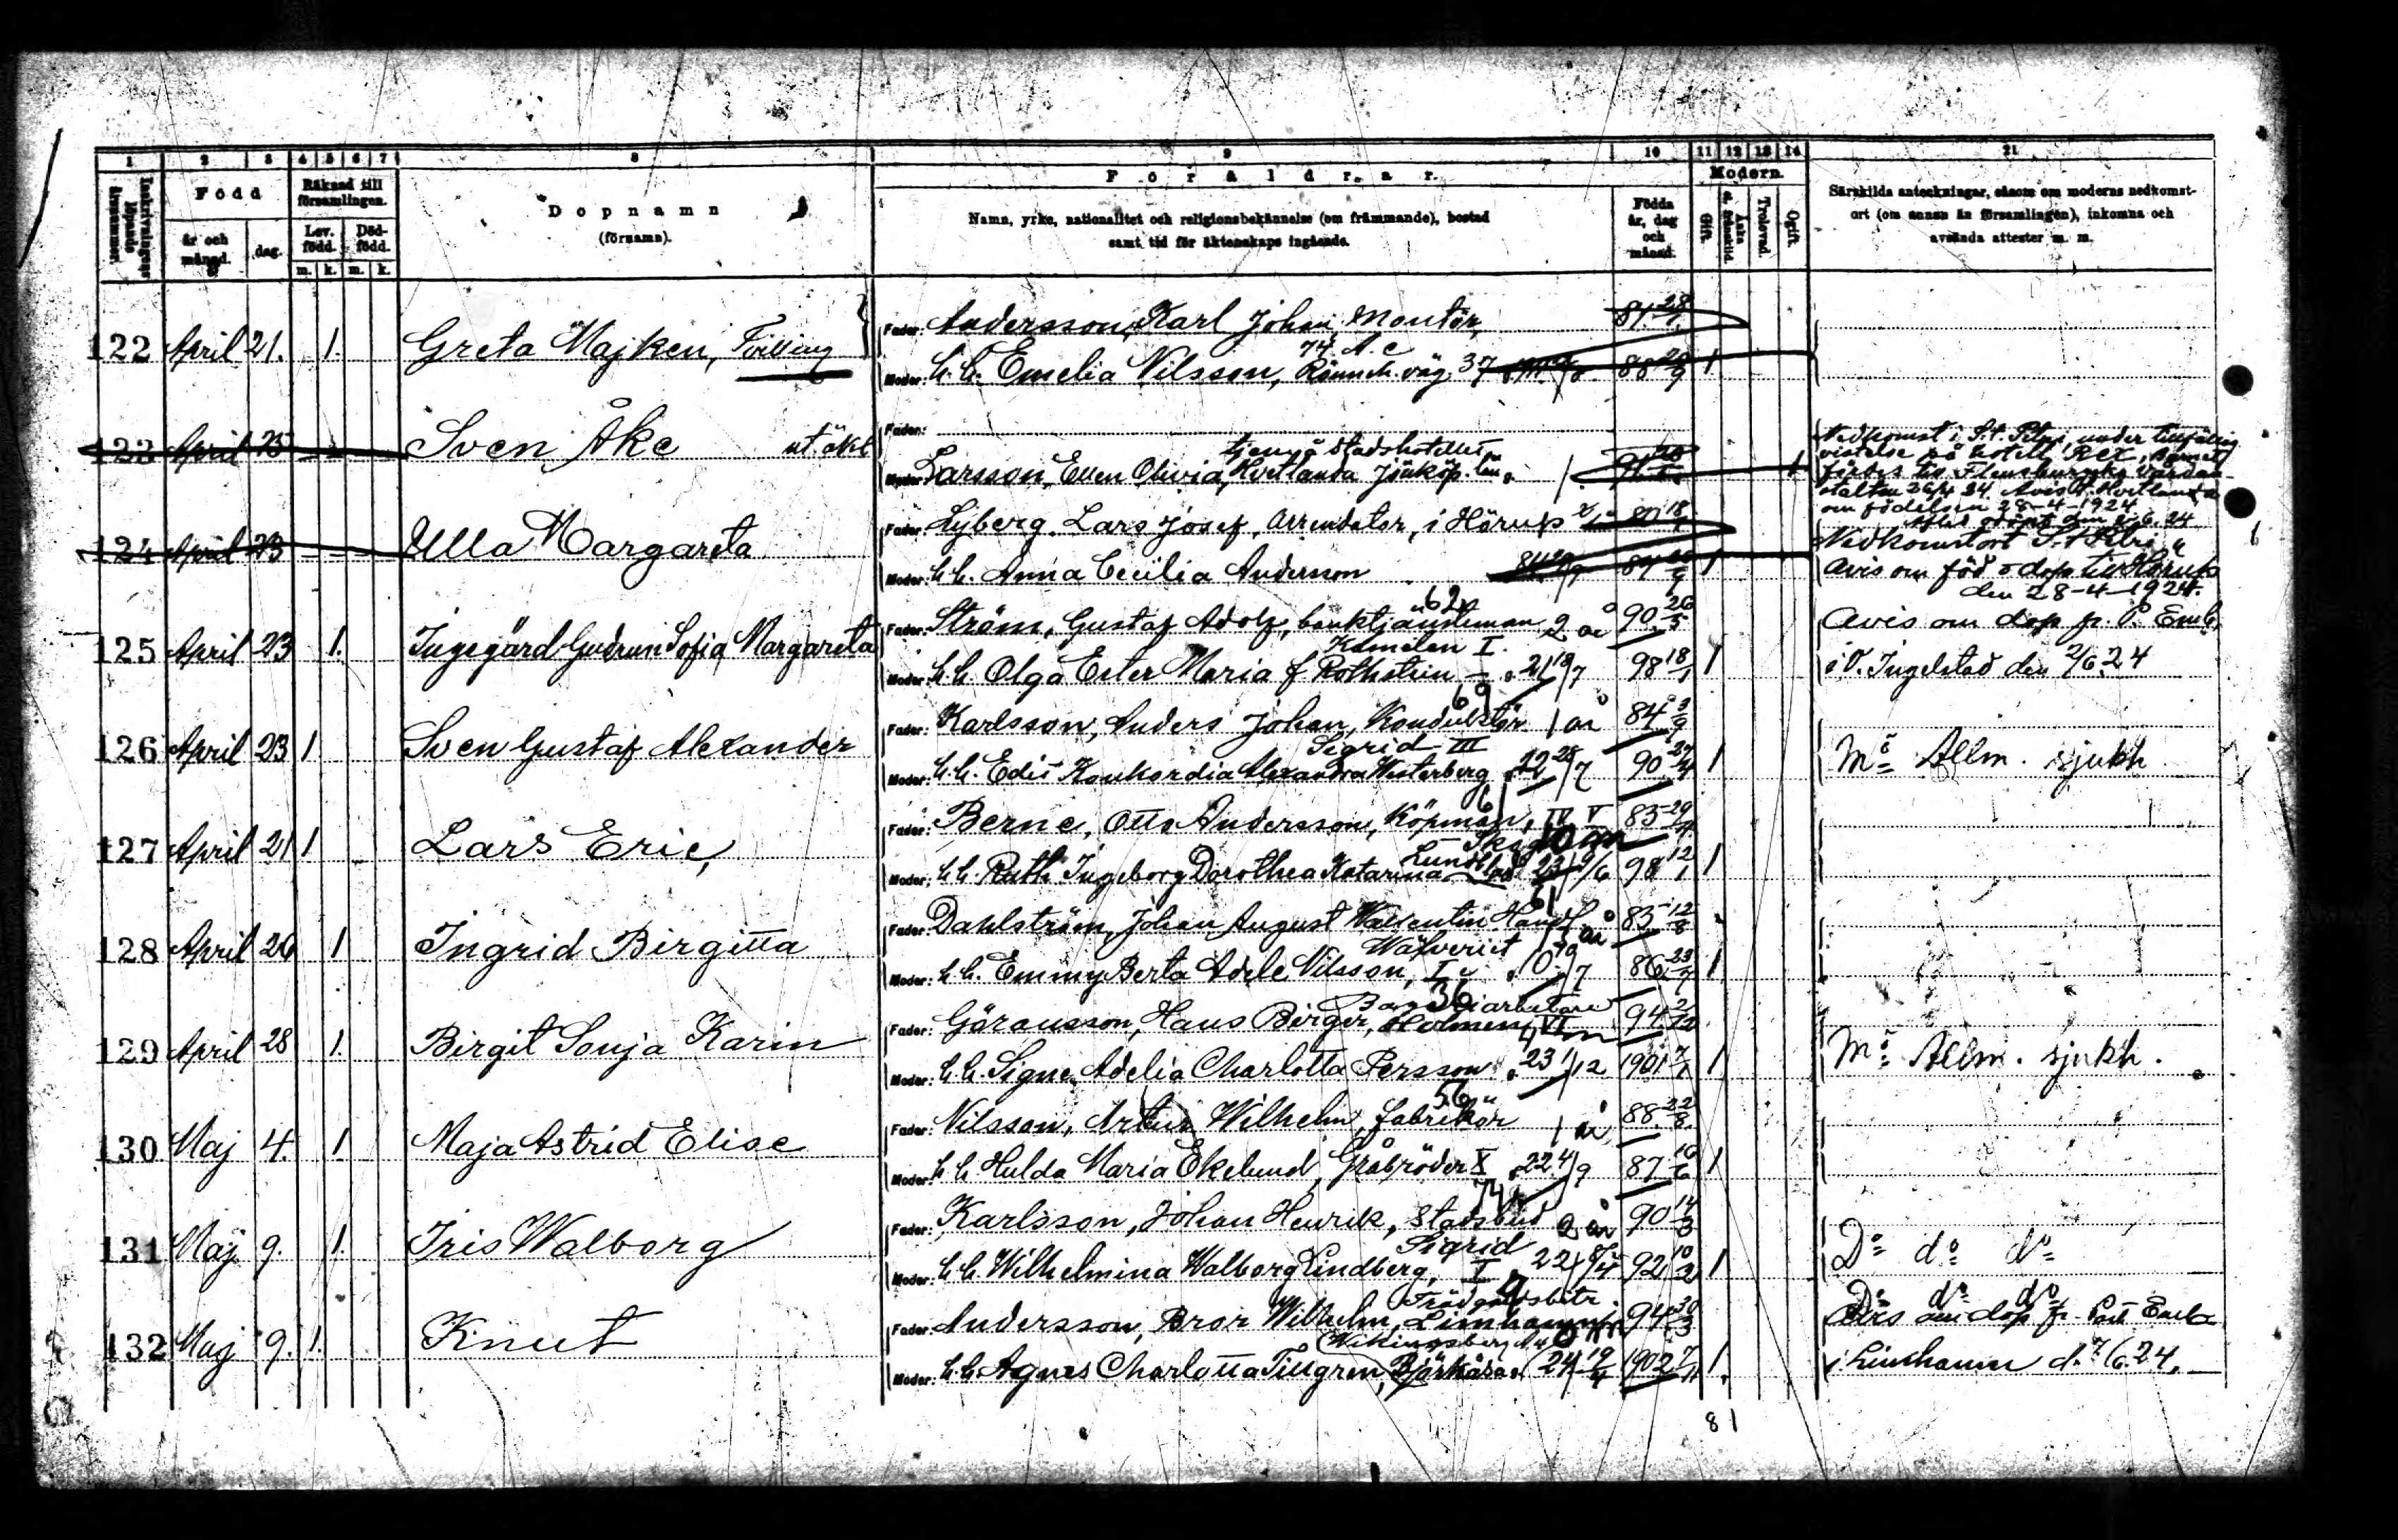 1 2 3 4 5 6 7 8 9 10 11 12 13 14 21
Inskrivningens löpande årsnummer.
Född
år och månad.
dag.
Räknad till församlingen.
Lev. född.
Död-född.
m. k. m. k.
Dopnamn
(förnamn).
Föräldrar.
Namn, yrke, nationalitet och religionsbekännelse (om främmande), bostad
samt tid för äktenskaps ingående.
Födda år, dag och månad.
Modern.
Gift.
Änka el. frånskild.
Trolovad.
Ogift.
Särskilda anteckningar, såsom om moderns nedkomst-
ort (om annan än församlingen), inkomna och
avsända attester m. m.
122 April 21. 1. Greta Majken, Tvilling
Fader: Andersson, Karl Johan, Montör,
74 A. c
Moder: h. h. Emelia Nilsson, Rönneh. väg. 37 88 29/9 1
123 April 25 Sven Åke ut äkt
Fader:
tjen. å Stadshotellet
Moder: Larsson, Ellen Olivia, Hvetlanda Jönköp. län.
Nedkomst i S:t Petri under tillfällig
vistelse på hotell Rex, Barnet
fördes till Flensburgska Vårdan-
stalten 26/4 24. Avis t. Hvetlanda
om födelsen 28-4-1924
124 April 23 Ulla Margareta
Fader: Lyberg, Lars Josef, Arrendator, i Hörup
Moder: h. h. Anna Cecilia Anderson 1
Nedkomstort S:t Petri
Avis om föd o dop till Hörup
den 28-4-1924.
125 April 23 1. Ingegärd Gudrun Sofia Margareta
62
Fader: Ström, Gustaf Adolf, banktjänsteman 2 år 90 26/5
Kamelen I.
Moder: h. h. Olga Ester Maria f. Rothstein 21 19/7 98 18/1 1
Avis om dop fr. P. Emb.
i Ö. Ingelstad den 2/6 24
126 April 23 1 Sven Gustaf Alexander
69
Fader: Karlsson, Anders Johan, Konduktör 1 år 84 3/9
Sigrid III
Moder: h. h. Edit Konkordia Alexandra Westerberg 22 28/7 90 27/4 1
Mö Allm. sjukh
127 April 21 1 Lars Eric,
61
Fader: Berne, Otto Andersson, Köpman, IV V 83 29/4
10 m
Moder: h. h. Ruth Ingeborg Dorothea Katarina Lundblad 23 9/6 98 12/1 1
128 April 26 1 Ingrid Birgitta
61
Fader: Dahlström, Johan August Walentin Handl 85 12/8
Wäfveriet
Moder: h. h. Emmy Berta Adele Nilsson, I 86 23/7 1
129 April 28 1. Birgit Sonja Karin
36
Bageriarbetare
Fader: Göransson, Hans Birger, Holmen VI 94 2/12
4 m
Moder: h. h. Signe Adelia Charlotta Persson 23 1/12 1901 7/1 1
Mö Allm. sjukh.
130 Maj 4. 1. Maja Astrid Elise
56
Fader: Nilsson, Artur Wilhelm, fabrikör 1 år 88 22/8
Moder: h h Hulda Maria Ekelund, Gråbröder X 22 4/9 87 16/6 1
131 Maj 9. 1. Iris Walborg
74
Fader: Karlsson, Johan Henrik, Stadsbud 2 år 90 14/3
Sigrid
Moder: h. h. Wilhelmina Walborg Lindberg, I 22 8/4 92 10/3 1
Do do do
132 Maj 9. 1. Knut
Trädgårdsbitr.
Fader: Andersson, Bror Wilhelm, Limhamn 94 30/3
Moder: h. h. Agnes Charlotta Tillgren, 24 19/4 1902 7/11 1.
Do do do
Avis om dop fr. Past Emb
i Limhamn d. 7/6 24.
81